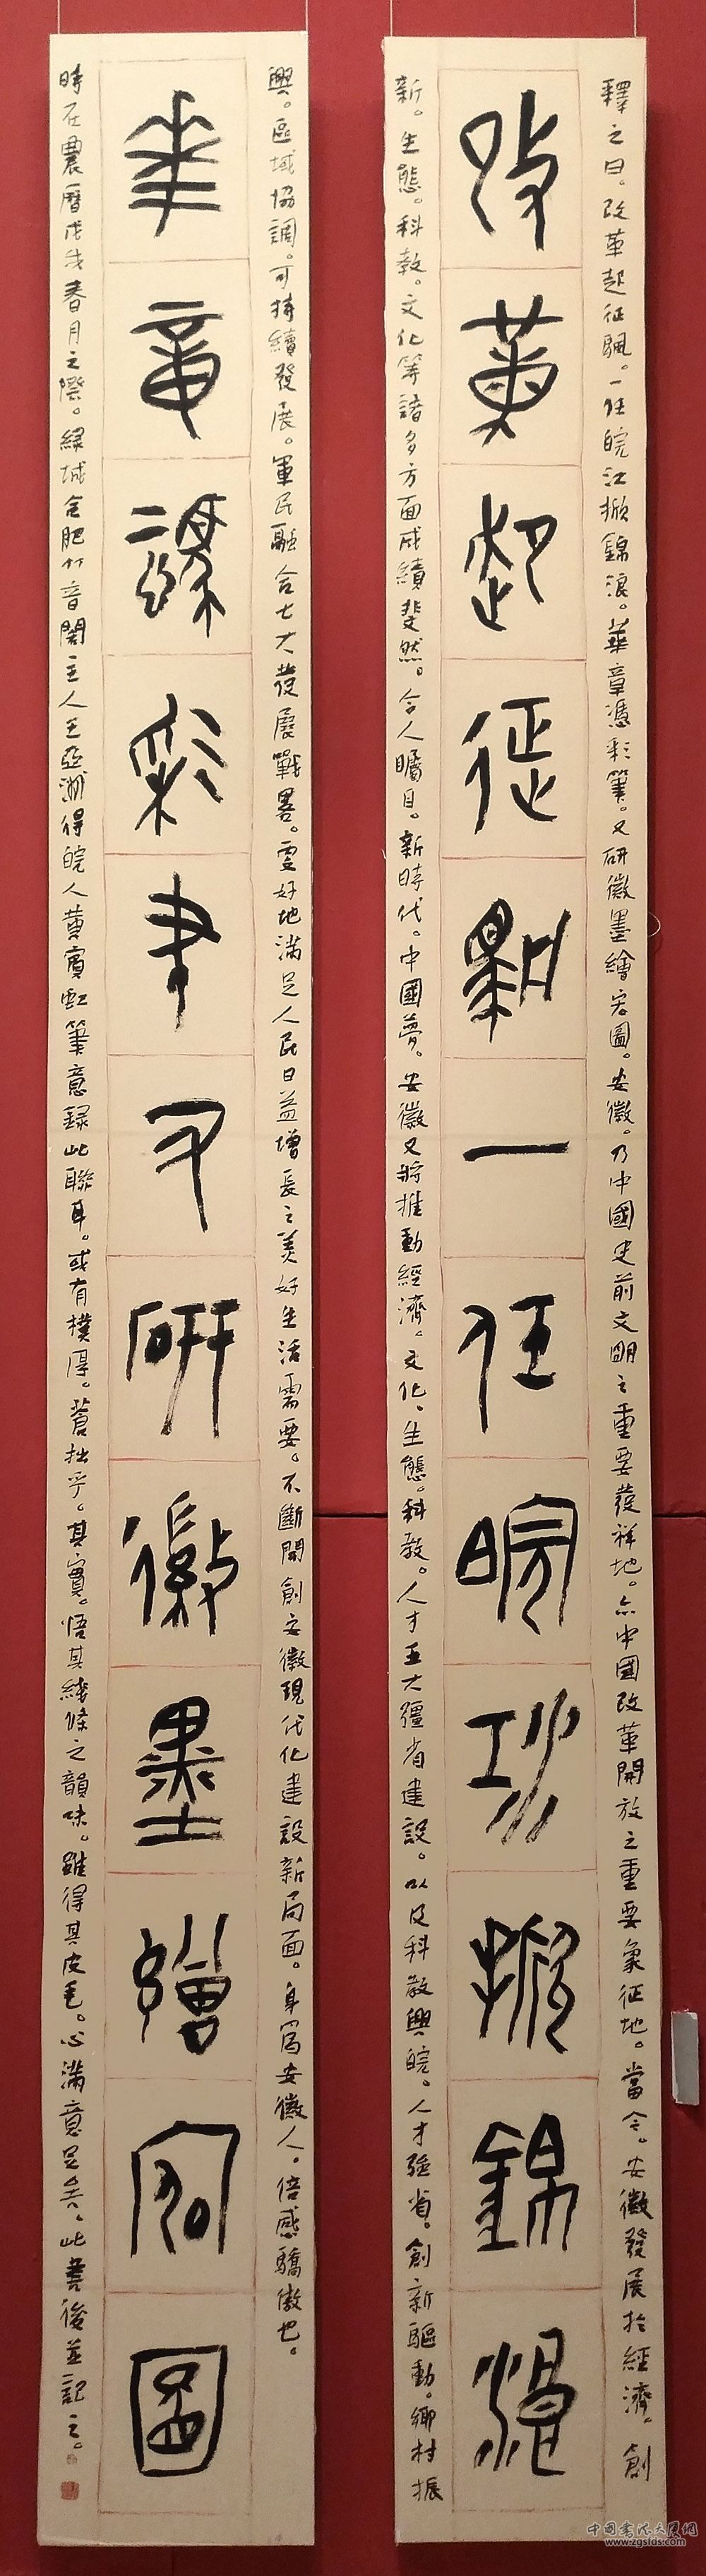 改革起征颿一任皖江掀錦浪
釋之曰。改革起征颿。一任皖江掀錦浪。華章憑彩筆。又研徽墨繪宏圖。安徽。乃中國史前文明之重要發祥地。亦中國改革開放之重要象征地。當今。安徽發展於經濟。創
新。生態。科教。文化等諸多方面成績斐然。令人矚目。新時代。中國夢。安徽又將推動經濟。文化。生態。科教。人才五大彊省建設。以及科教興皖。人才強省。創新驅動。鄉村振
華章憑彩筆又研徽墨繪宏圖
興。區域協調。可持續發展。軍民融合七大發展戰畧。更好地滿足人民日益增長之美好生活需要。不斷開創安徽現代化建設新局面。身爲安徽人。倍感驕傲也。
時在農曆戊戌春月之際。綠城合肥竹音閣主人王亞洲得皖人黄賓虹筆意録此聯耳。或有樸厚。蒼拙乎。其實。悟其綫條之韻味。雖得其皮毛。心滿意足矣。此書後並記之。
中国书法大展网
www.zgsfds.com